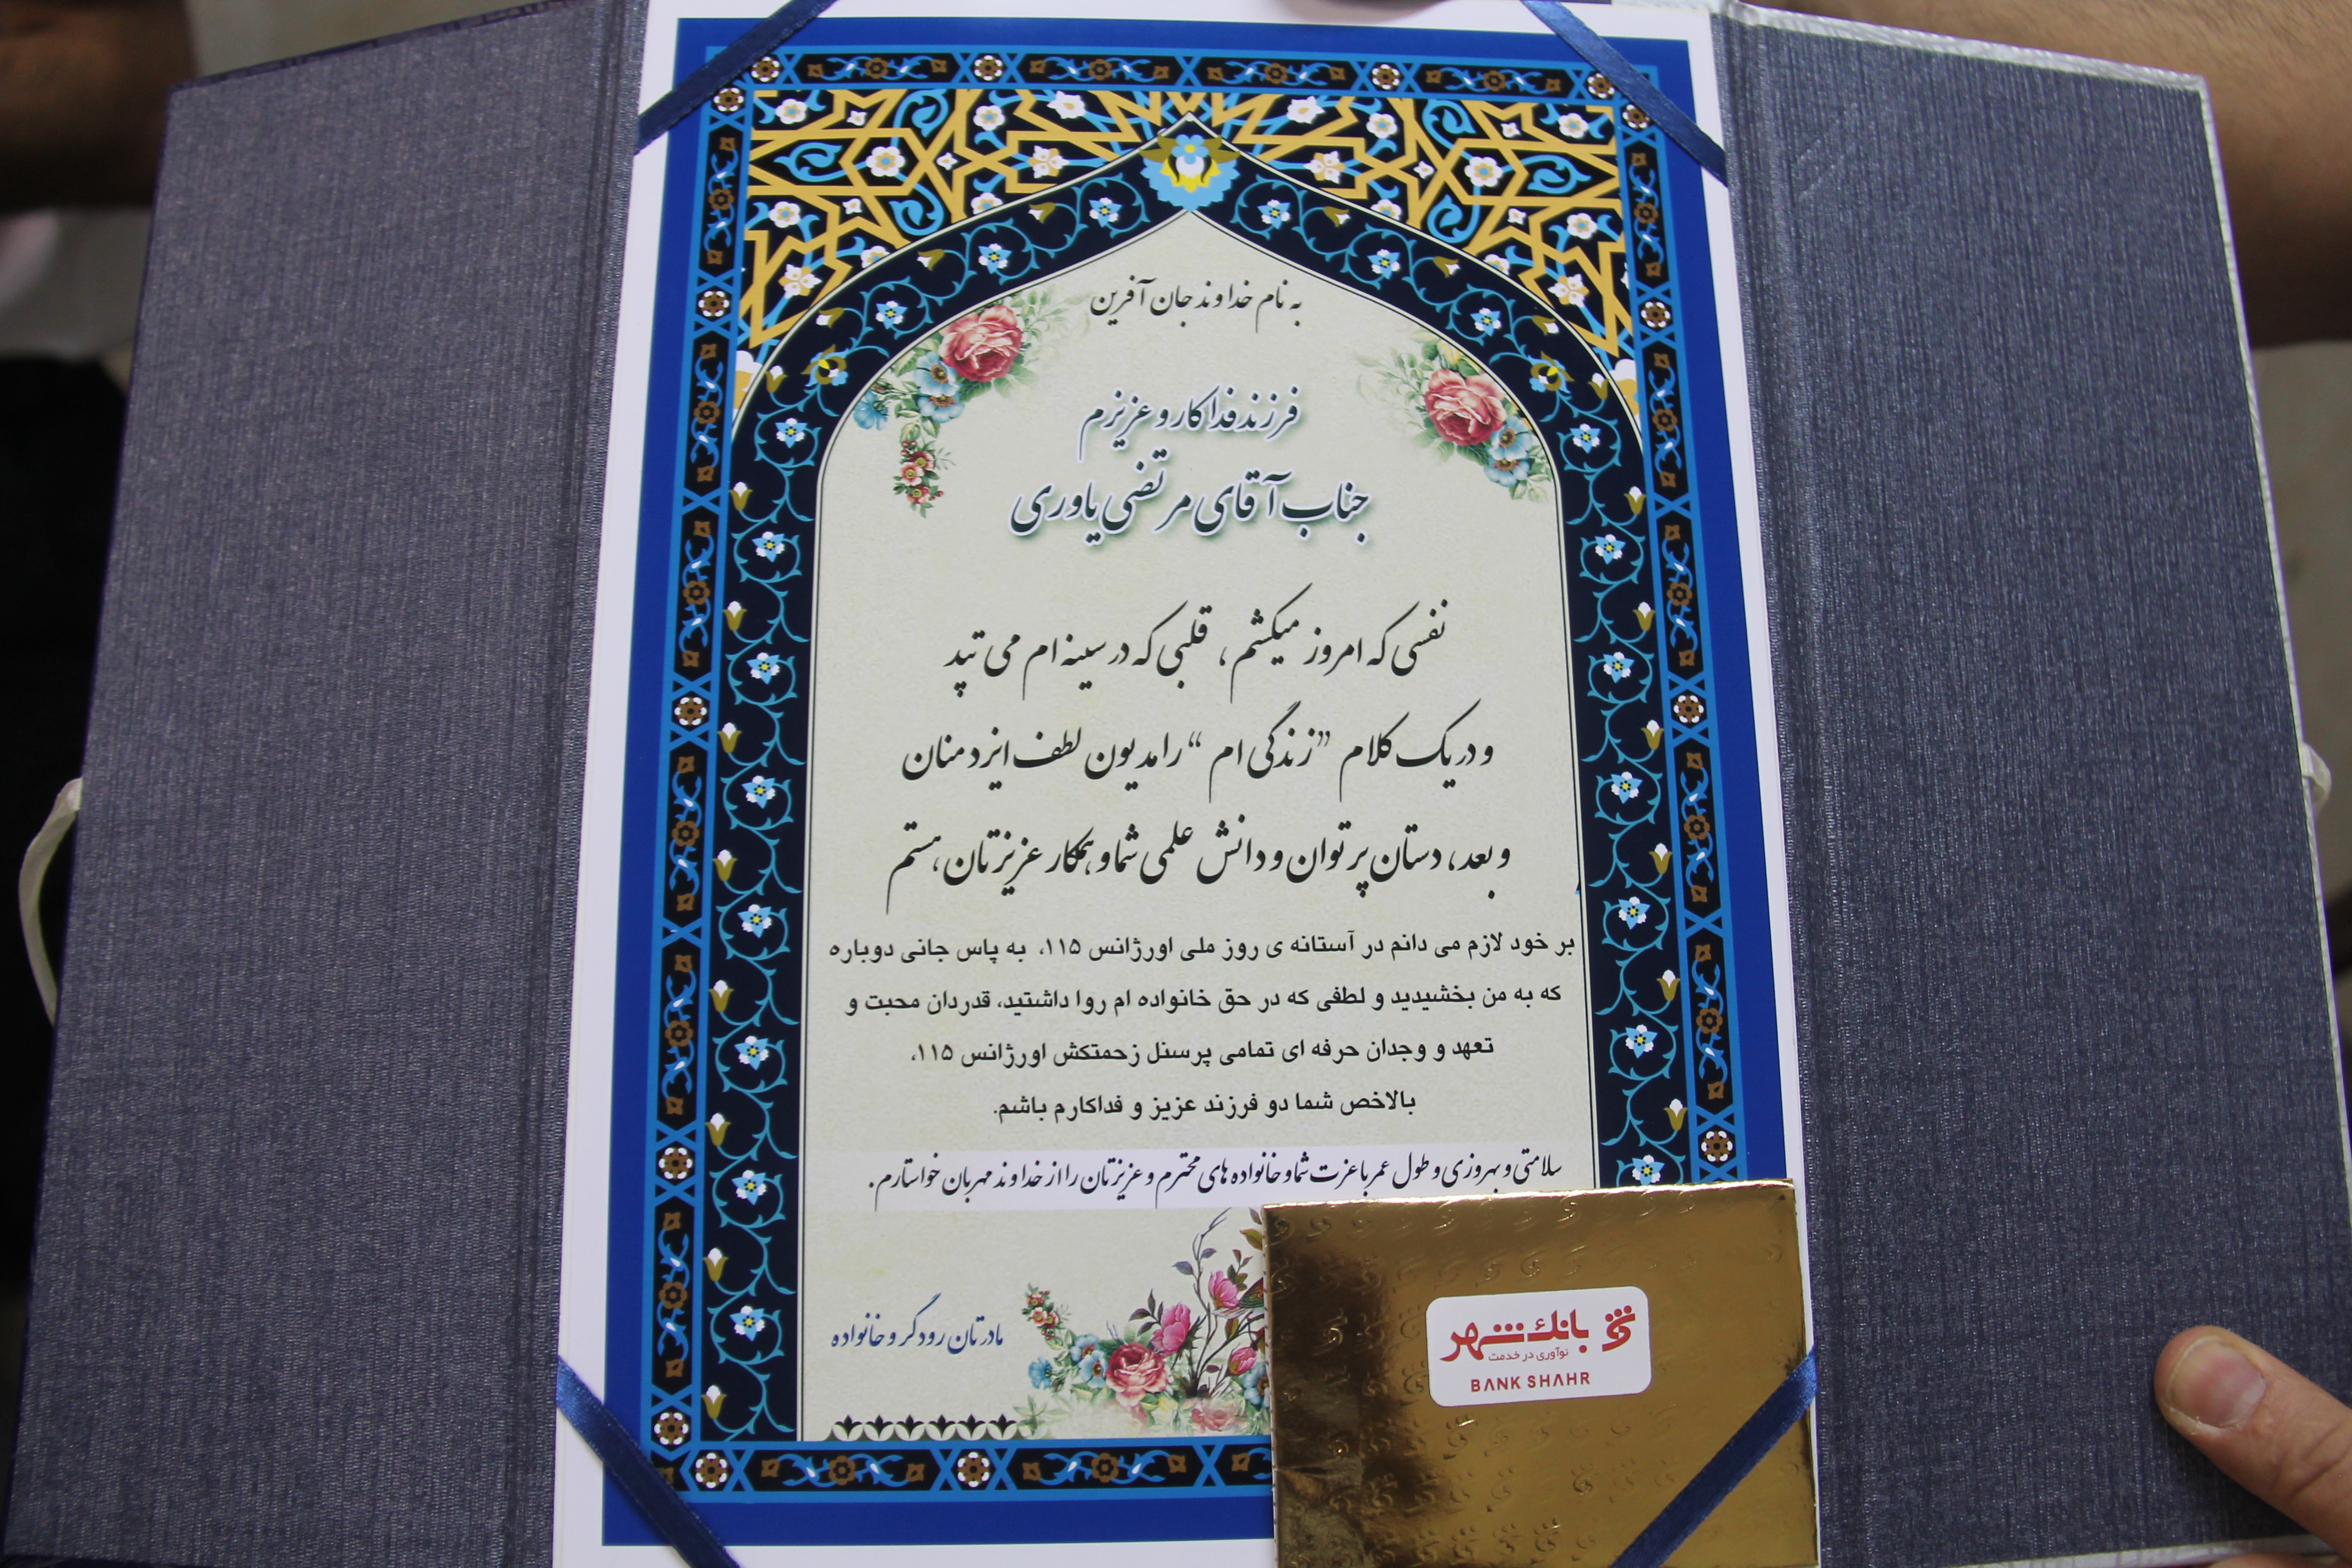 به نام خداوند جان آفرین
فرزند فداکار و عزیزم
جناب آقای مرتضی یاوری
نفسی که امروز میکشم، قلبی که در سینه ام می تپد
و در یک کلام "زندگی ام" را مدیون لطف ایزد منان
و بعد، دستان پر توان و دانش علمی شما و همکار عزیزتان، هستم
بر خود لازم می دانم در آستانه ی روز ملی اورژانس ۱۱۵، به پاس جانی دوباره
که به من بخشیدید و لطفی که در حق خانواده ام روا داشتید، قدردان محبت و
تعهد و وجدان حرفه ای تمامی پرسنل زحمتکش اورژانس ۱۱۵،
بالاخص شما دو فرزند عزیز و فداکارم باشم.
سلامتی و بهروزی و طول عمر با عزت شما و خانواده های محترم و عزیزتان را از خداوند مهربان خواستارم.
مادرتان رودگر و خانواده
بانک شهر
نوآوری در خدمت
BANK SHAHR